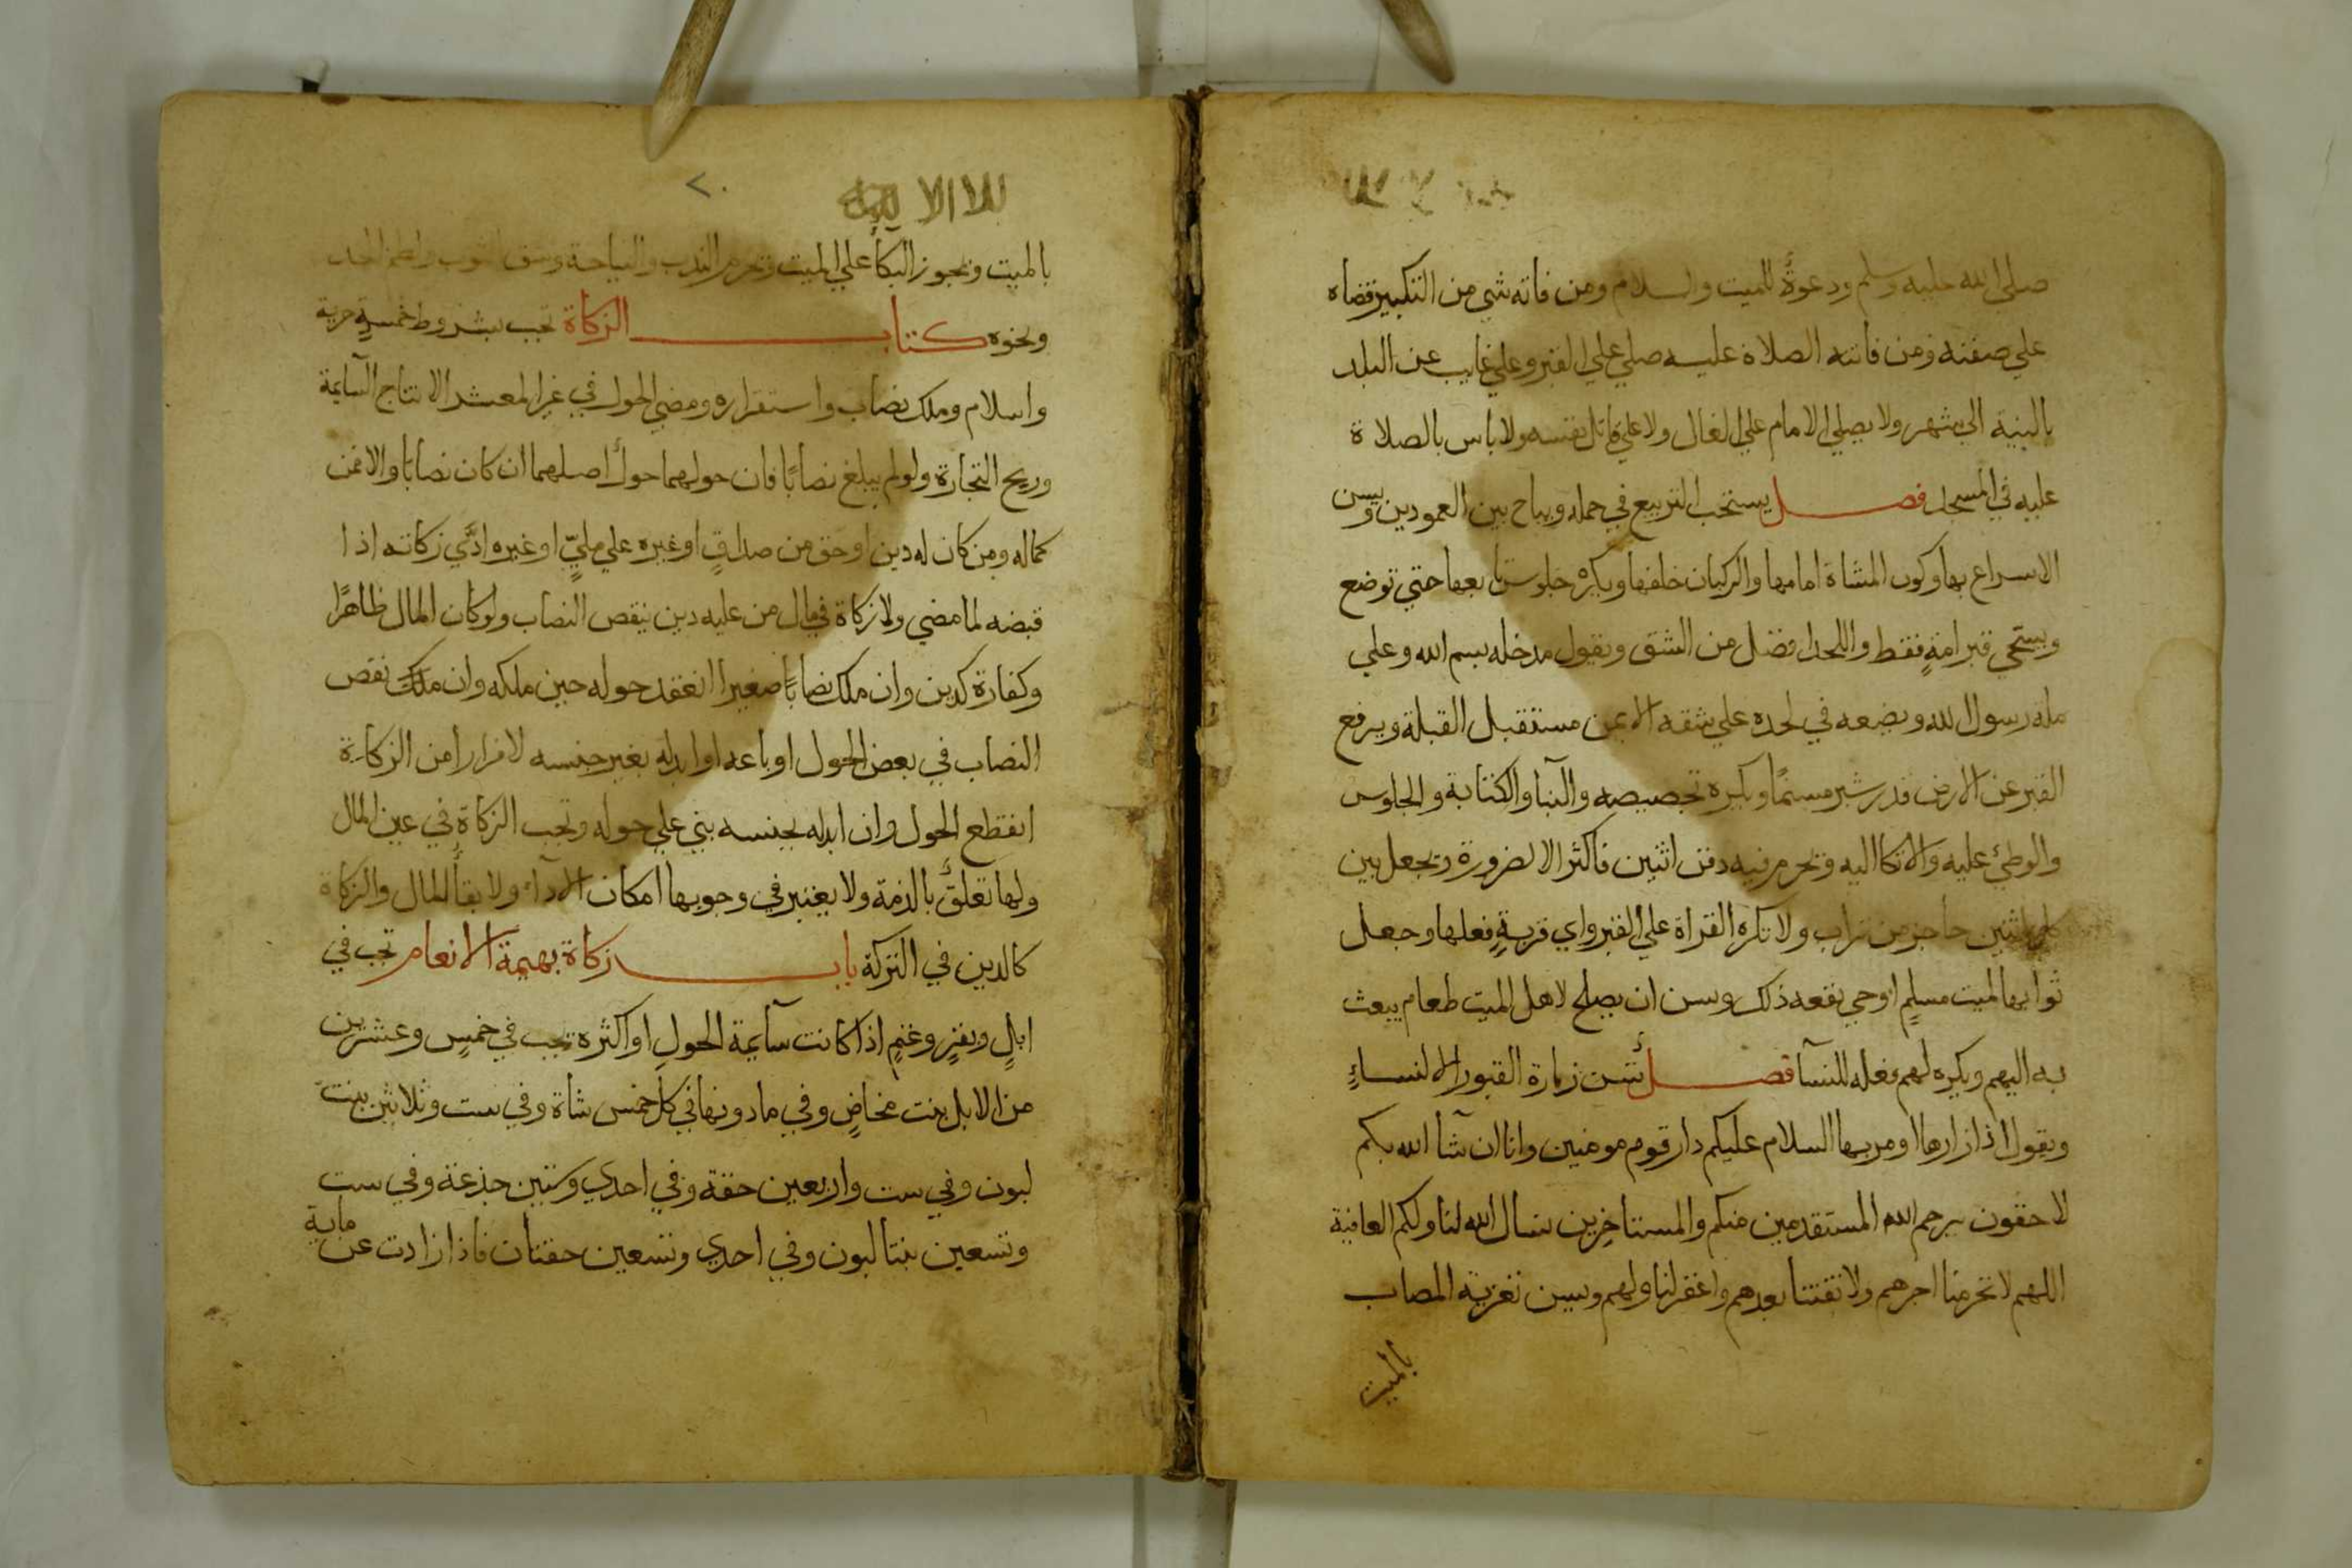 صلي الله عليه وسلم ودعوة للميت والسلام ومن فاته شي من التكبير قضاه
علي صفته ومن فاتته الصلاة عليه صلي علي القبر وعلي غايب عن البلد
بالنية الي شهر ولا يصلي الامام علي الغال ولا علي قاتل نفسه ولا باس بالصلاة
عليه في المسجد فصل يستحب التربيع في حمله ويباح بين العمودين ويسن
الاسراع بها وكون المشاة امامها والركبان خلفها ويكره جلوس تابعها حتي توضع
ويسجي قبر امرأة فقط واللحد افضل من الشق ويقول مدخله بسم الله وعلي
ملة رسول الله ويضعه في لحده علي شقه الايمن مستقبل القبلة ويرفع
القبر عن الارض قدر شبر مسنما ويكره تجصيصه والبنا والكتابة والجلوس
والوطئ عليه والاتكا اليه ويحرم فيه دفن اثنين فاكثر الا لضرورة ويجعل بين
كل اثنين حاجز من تراب ولا تكره القراة علي القبر واي قربةٍ فعلها وجعل
ثوابها لميت مسلمٍ او حي نفعه ذلك ويسن ان يصلح لاهل الميت طعام يبعث
به اليهم ويكره لهم فعله للناس فصل تسن زيارة القبور الا لنساءٍ
ويقول اذا زارها او مر بها السلام عليكم دار قوم مومنين وانا ان شآ الله بكم
لاحقون يرحم الله المستقدمين منكم والمستاخرين نسال الله لنا ولكم العافية
اللهم لا تحرمنا اجرهم ولا تفتنا بعدهم واغفر لنا ولهم ويسن تعزية المصاب
بالميت
٢٠
بالميت ويجوز البكأ علي الميت ويحرم الندب والنياحة وشق الثوب ولطم الخد
ونحوه كتاب الزكاة تجب بشروط خمسةٍ حرية
واسلام وملك نصاب واستقراره ومضي الحول في غير المعشر الا نتاج السآيمة
وربح التجارة ولو لم يبلغ نصابًا فان حولهما حول اصلهما ان كان نصابا والا فمن
كماله ومن كان له دين او حق من صداقٍ او غيره علي مليٍّ او غيره ادَّي زكاته اذا
قبضه لما مضي ولا زكاة في مال من عليه دين ينقص النصاب ولو كان المال ظاهرًا
وكفارة كدين وان ملك نصابًا صغيرا انعقد حوله حين ملكه وان نقص
النصاب في بعض الحول او باعه او ابدله بغير جنسه لا فرارا من الزكاة
انقطع الحول وان ابدله بجنسه بني علي حوله وتجب الزكاة في عين المال
ولها تعلق بالذمة ولا يعتبر في وجوبها امكان الادآ ولا بقأ المال والزكاة
كالدين في التركة باب زكاة بهيمة الانعام تجب في
ابلٍ وبقرٍ وغنمٍ اذا كانت سآيمة الحولِ او اكثره تجب في خمسٍ وعشرين
من الابل بنت مخاضٍ وفي ما دونها في كل خمس شاة وفي ست وثلاثين بنت
لبون وفي ست واربعين حقة وفي احدي وستين جذعة وفي ست
وتسعين بنتا لبون وفي احدي وتسعين حقتان فاذا زادت عن ماية